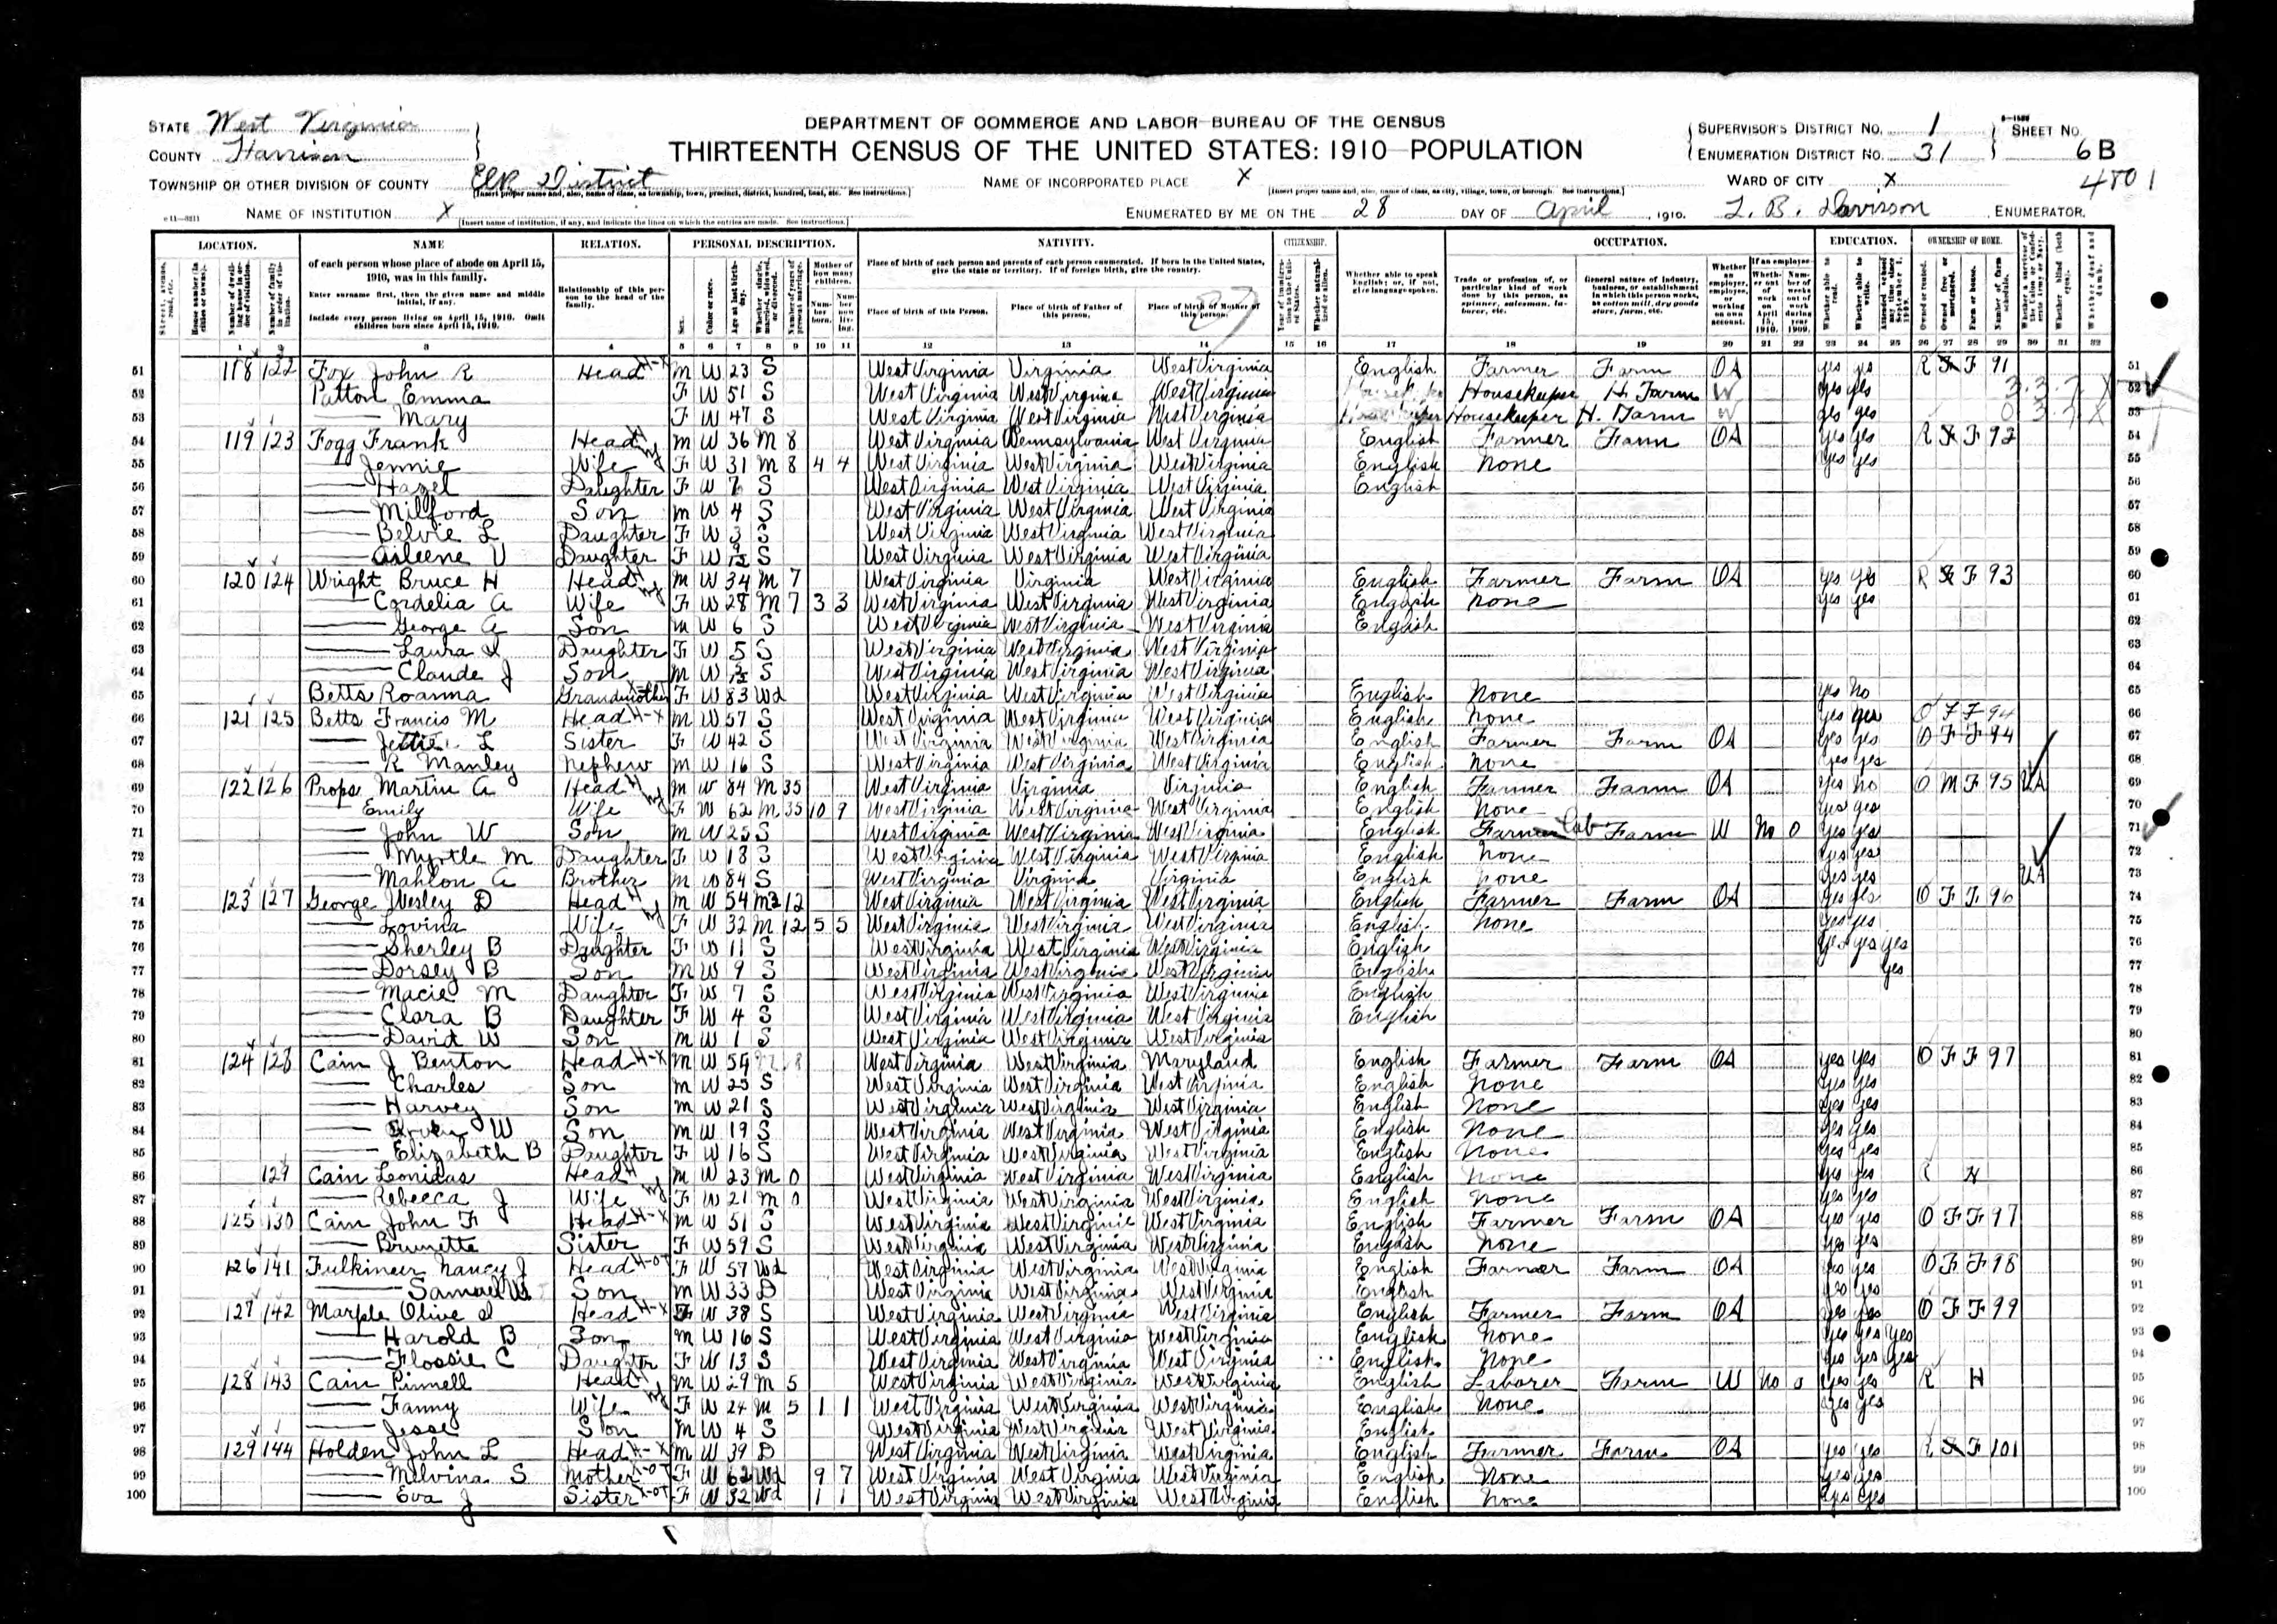 DEPARTMENT OF COMMERCE AND LABOR—BUREAU OF THE CENSUS
THIRTEENTH CENSUS OF THE UNITED STATES: 1910—POPULATION
STATE West Virginia
COUNTY Harrison
TOWNSHIP OR OTHER DIVISION OF COUNTY Elk District
NAME OF INSTITUTION X
NAME OF INCORPORATED PLACE X
ENUMERATED BY ME ON THE 28 DAY OF April, 1910. L. B. Davisson, ENUMERATOR.
SUPERVISOR'S DISTRICT NO. 1
ENUMERATION DISTRICT NO. 31
SHEET NO. 6B
WARD OF CITY X
4801
LOCATION. NAME RELATION. PERSONAL DESCRIPTION. NATIVITY. CITIZENSHIP. OCCUPATION. EDUCATION. OWNERSHIP OF HOME.
of each person whose place of abode on April 15, 1910, was in this family.
Enter surname first, then the given name and middle initial, if any.
Include every person living on April 15, 1910. Omit children born since April 15, 1910.
Relationship of this person to the head of the family.
Place of birth of each person and parents of each person enumerated. If born in the United States, give the state or territory. If of foreign birth, give the country.
Place of birth of this Person. Place of birth of Father of this person. Place of birth of Mother of this person.
Whether able to speak English; or, if not, give language spoken.
51 118 122 Fox John R Head M W 23 S West Virginia Virginia West Virginia English Farmer Farm OA yes yes R F 91
52 Patton Emma F W 51 S West Virginia West Virginia West Virginia Housekeeper H. Farm W yes yes
53 —— Mary F W 47 S West Virginia West Virginia West Virginia Housekeeper H. Farm W yes yes
54 119 123 Fogg Frank Head M W 36 M 8 West Virginia Pennsylvania West Virginia English Farmer Farm OA yes yes R F 92
55 —— Jennie Wife F W 31 M 8 4 4 West Virginia West Virginia West Virginia English None yes yes
56 —— Hazel Daughter F W 7 S West Virginia West Virginia West Virginia English
57 —— Milford Son M W 4 S West Virginia West Virginia West Virginia
58 —— Belvie L Daughter F W 3 S West Virginia West Virginia West Virginia
59 —— Aileene V Daughter F W 9/12 S West Virginia West Virginia West Virginia
60 120 124 Wright Bruce H Head M W 34 M 7 West Virginia Virginia West Virginia English Farmer Farm OA yes yes R F 93
61 —— Cordelia A Wife F W 28 M 7 3 3 West Virginia West Virginia West Virginia English none yes yes
62 —— George A Son M W 6 S West Virginia West Virginia West Virginia English
63 —— Laura Daughter F W 5 S West Virginia West Virginia West Virginia
64 —— Claude J Son M W S West Virginia West Virginia West Virginia
65 Betts Roanna Grandmother F W 83 Wd West Virginia West Virginia West Virginia English None yes no
66 121 125 Betts Francis M Head M W 57 S West Virginia West Virginia West Virginia English none yes yes O F F 94
67 —— Jettie L Sister F W 42 S West Virginia West Virginia West Virginia English Farmer Farm OA yes yes O F F 94
68 —— R Manley Nephew M W 16 S West Virginia West Virginia West Virginia English none yes yes
69 122 126 Props Martin A Head M W 84 M 35 West Virginia Virginia Virginia English Farmer Farm OA yes no O M F 95 UA
70 Emily Wife F W 62 M 35 10 9 West Virginia West Virginia West Virginia English None yes yes
71 —— John W Son M W 25 S West Virginia West Virginia West Virginia English Farm Lab Farm W No 0 yes yes
72 —— Myrtle M Daughter F W 18 S West Virginia West Virginia West Virginia English none yes yes
73 —— Mahlon A Brother M W 84 S West Virginia Virginia Virginia English none yes yes UA
74 123 127 George Wesley D Head M W 54 M2 12 West Virginia West Virginia West Virginia English Farmer Farm OA yes yes O F F 96
75 —— Lovina Wife F W 32 M 12 5 5 West Virginia West Virginia West Virginia English none yes yes
76 —— Sherley B Daughter F W 11 S West Virginia West Virginia West Virginia English yes yes yes
77 —— Dorsey B Son M W 9 S West Virginia West Virginia West Virginia English yes
78 —— Macie M Daughter F W 7 S West Virginia West Virginia West Virginia English
79 —— Clara B Daughter F W 4 S West Virginia West Virginia West Virginia English
80 —— David W Son M W 1 S West Virginia West Virginia West Virginia
81 124 128 Cain J Benton Head M W 54 West Virginia West Virginia Maryland English Farmer Farm OA yes yes O F F 97
82 —— Charles Son M W 25 S West Virginia West Virginia West Virginia English none yes yes
83 —— Harvey Son M W 21 S West Virginia West Virginia West Virginia English None yes yes
84 —— W Son M W 19 S West Virginia West Virginia West Virginia English None yes yes
85 —— Elizabeth B Daughter F W 16 S West Virginia West Virginia West Virginia English None yes yes
86 129 Cain Leonidas Head M W 23 M 0 West Virginia West Virginia West Virginia English None yes yes R H
87 —— Rebecca J Wife F W 21 M 0 West Virginia West Virginia West Virginia English none yes yes
88 125 130 Cain John F Head M W 51 S West Virginia West Virginia West Virginia English Farmer Farm OA yes yes O F F 97
89 —— Brunette Sister F W 59 S West Virginia West Virginia West Virginia English none yes yes
90 126 141 Fulkineer Nancy J Head F W 57 Wd West Virginia West Virginia West Virginia English Farmer Farm OA yes yes O F F 98
91 —— Samuel W Son M W 33 D West Virginia West Virginia West Virginia English yes yes
92 127 142 Marple Olive Head F W 38 S West Virginia West Virginia West Virginia English Farmer Farm OA yes yes O F F 99
93 —— Harold B Son M W 16 S West Virginia West Virginia West Virginia English none yes yes yes
94 —— Flossie C Daughter F W 13 S West Virginia West Virginia West Virginia English none yes yes yes
95 128 143 Cain Pinnell Head M W 29 M 5 West Virginia West Virginia West Virginia English Laborer Farm W No 0 yes yes R H
96 —— Fanny Wife F W 24 M 5 1 1 West Virginia West Virginia West Virginia English none yes yes
97 —— Jesse Son M W 4 S West Virginia West Virginia West Virginia English
98 129 144 Holden John L Head M W 39 D West Virginia West Virginia West Virginia English Farmer Farm OA yes yes R F 101
99 —— Melvina S Mother F W 62 Wd 9 7 West Virginia West Virginia West Virginia English None yes yes
100 —— Eva J Sister F W 32 Wd 1 1 West Virginia West Virginia West Virginia English none yes yes